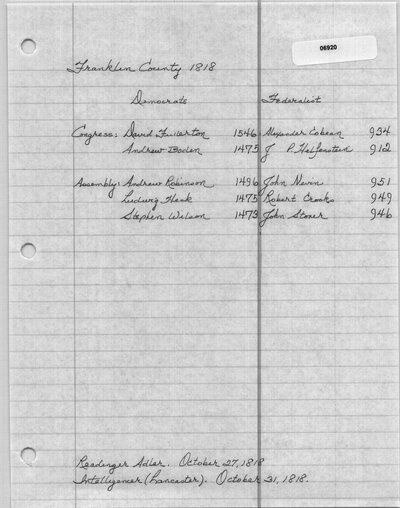 06920
Franklin County 1818
Democrats Federalist
Congress: David Fullerton 1546 Alexander Cobean 934
Andrew Boden 1475 J. P. Helfenstein 912
Assembly: Andrew Robinson 1496 John Nevin 951
Ludwig Heck 1475 Robert Crooks 949
Stephen Wilson 1473 John Stoner 946
Readinger Adler. October 27, 1818
Intelligencer (Lancaster). October 31, 1818.